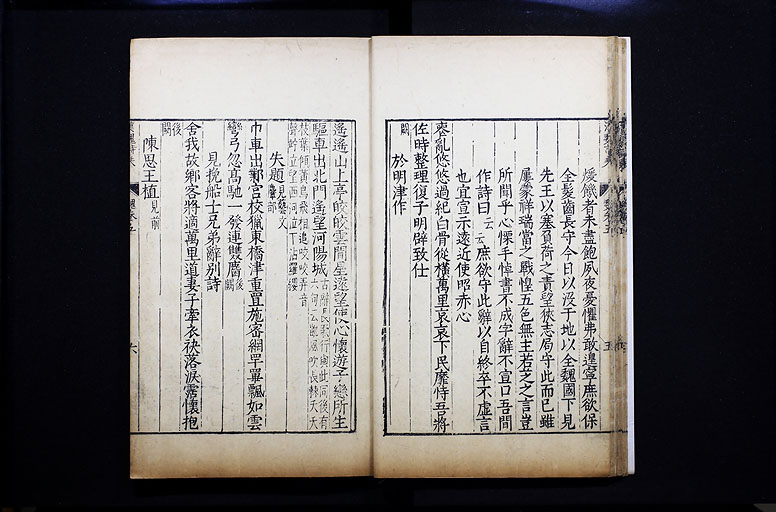 煖饑者未盡飽夙夜憂懼弗敢遑寧庶欲保
全髮齒長守今日以没于地以全魏國下見
先王以塞負荷之責望狹志局守此而已雖
屢蒙祥瑞當之戰惶五色無主若芝之言豈
所聞乎心慄手悼書不成字辭不宣口吾聞
作詩曰云云庶欲守此辭以自終卒不虛言
也宜宣示遠近使昭赤心
喪亂悠悠過紀白骨從橫萬里哀哀下民靡恃吾將
佐時整理復子明辟致仕
闕
於明津作
遙遙山上亭皎皎雲間星遠望使心懷遊子戀所生
驅車出北門遙望河陽城
失題見藝文
巾車出鄴宮校獵東橋津重罝施密網罕畢飄如雲
彎弓忽高馳一發連雙麕後闕
見挽船士兄弟辭别詩
舍我故鄉客將適萬里道妻子牽衣袂落淚霑懷抱
後闕
陳思王植見前